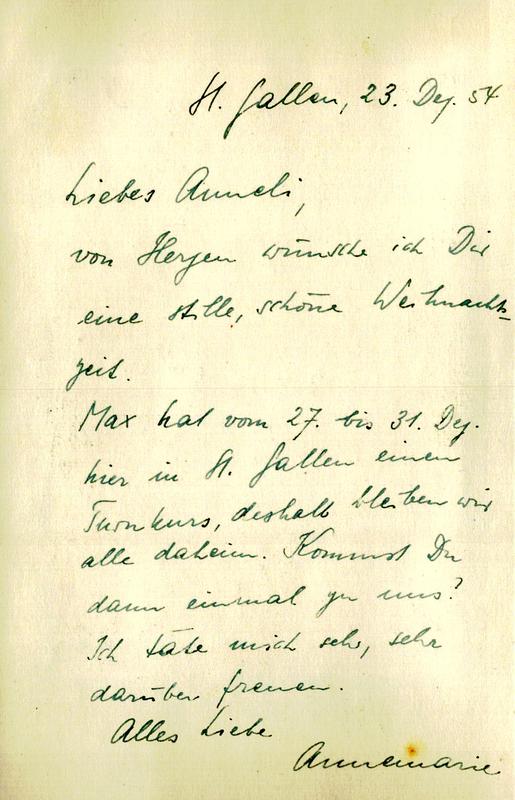 St. Gallen, 23. Dez. 54
Liebes Anneli,
von Herzen wünsche ich Dir
eine stille, schöne Weihnachts-
zeit.
Max hat vom 27. bis 31. Dez.
hier in St. Gallen einen
Turnkurs, deshalb bleiben wir
alle daheim. Kommst Du
dann einmal zu uns?
Ich täte mich sehr, sehr
darüber freuen.
Alles Liebe
Annemarie